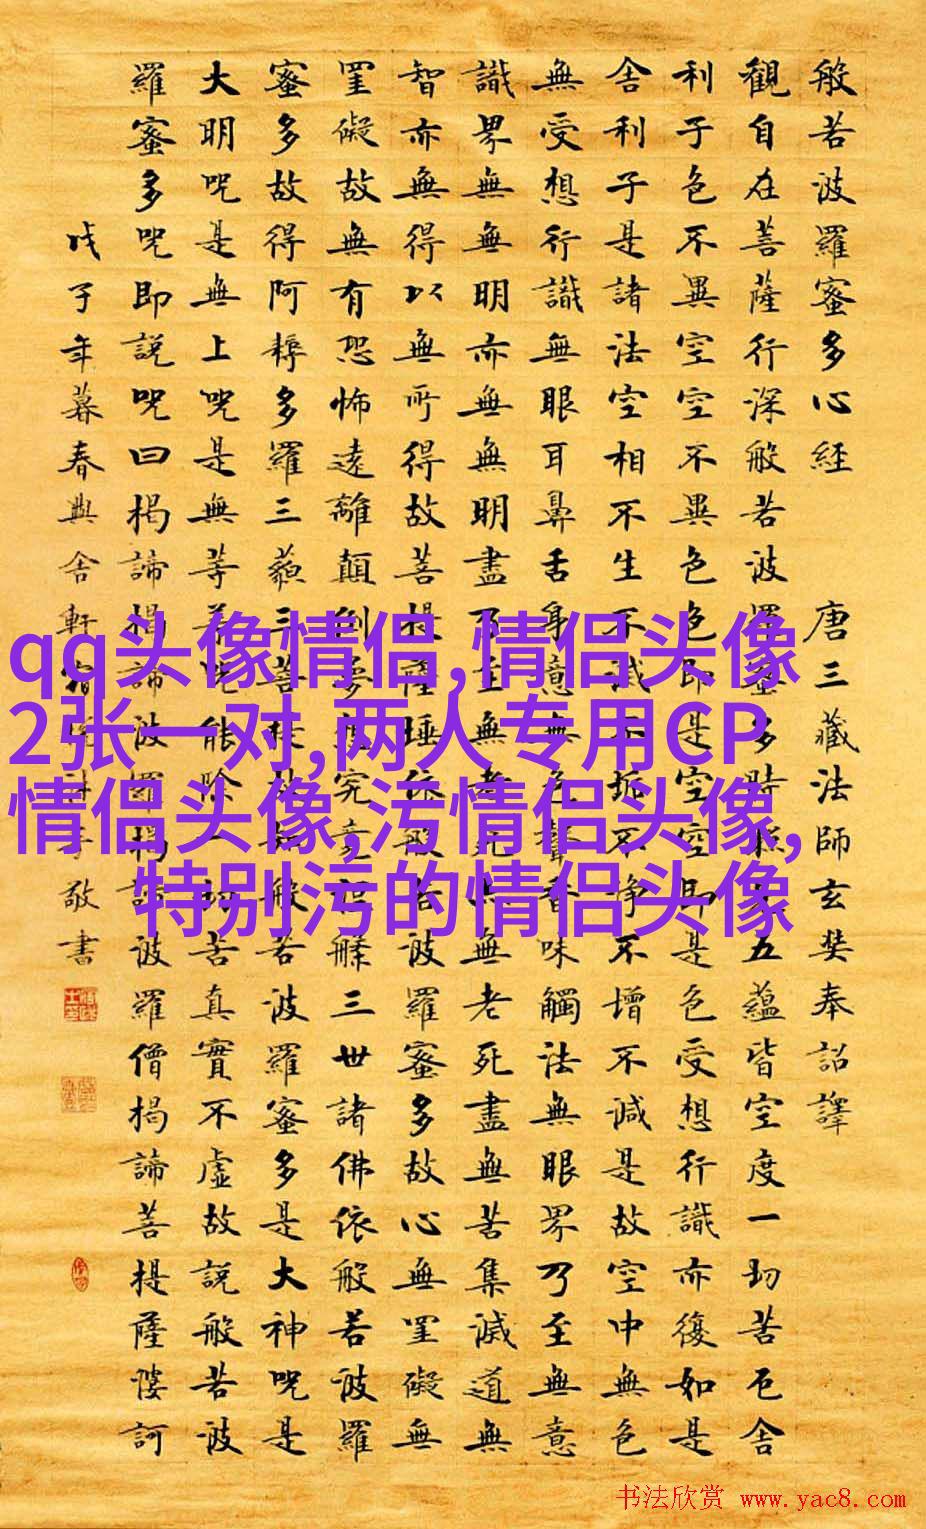 般若波羅蜜多心經 唐三藏法師玄奘奉詔譯
觀自在菩薩行深般若波羅蜜多時照見五蘊皆空度一切苦厄舍
利子色不異空空不異色色即是空空即是色受想行識亦復如是
舍利子是諸法空相不生不滅不垢不淨不增不減是故空中無色
無受想行識無眼耳鼻舌身意無色聲香味觸法無眼界乃至無意
識界無無明亦無無明盡乃至無老死亦無老死盡無苦集滅道無
智亦無得以無所得故菩提薩埵依般若波羅蜜多故心無罣礙無
罣礙故無有恐怖遠離顛倒夢想究竟涅槃三世諸佛依般若波羅
蜜多故得阿耨多羅三藐三菩提故知般若波羅蜜多是大神咒是
大明咒是無上咒是無等等咒能除一切苦真實不虛故說般若波
羅蜜多咒即說咒曰揭諦揭諦波羅揭諦波羅僧揭諦菩提薩婆訶
戊子年暮春興舍軒敬書
qq头像情侣,情侣头像
2张一对,两人专用CP
情侣头像,污情侣头像,
特别污的情侣头像
书法欣赏 www.yac8.com